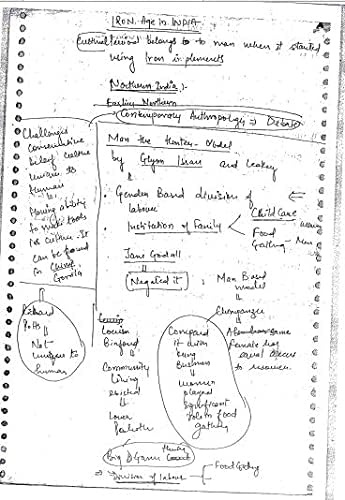 IRON Age in INDIA
Cultural Period belongs to to man when it started
using Iron implements
Northern India :-
Earlier Northern
Contemporary Anthropology → Debate
Challenges
Conservative
bilay culture
unique to
Humans
Having ability
to make tools
is culture. It
can be found
in Chimp
Gorilla
Richard
Potts
Not
unique to
human
Man the Hunter Model
by Glynn Isaac and Leakey
• Gender Based division of
labour
• Institution of Family
Child Care
Food
Gathing - Men
Jane Goodall
Negated it
Man Based
model
Chimpanzee
Abundance game
Female has
equal access
to resources
Lewis
Binford
Community
Living
existed
Lower
Paleolith
Compared
it with
Kung
Bushman
women
played
significant
role in food
gathing
Hunting
Big Game
→ Division of labour
Food Gathing